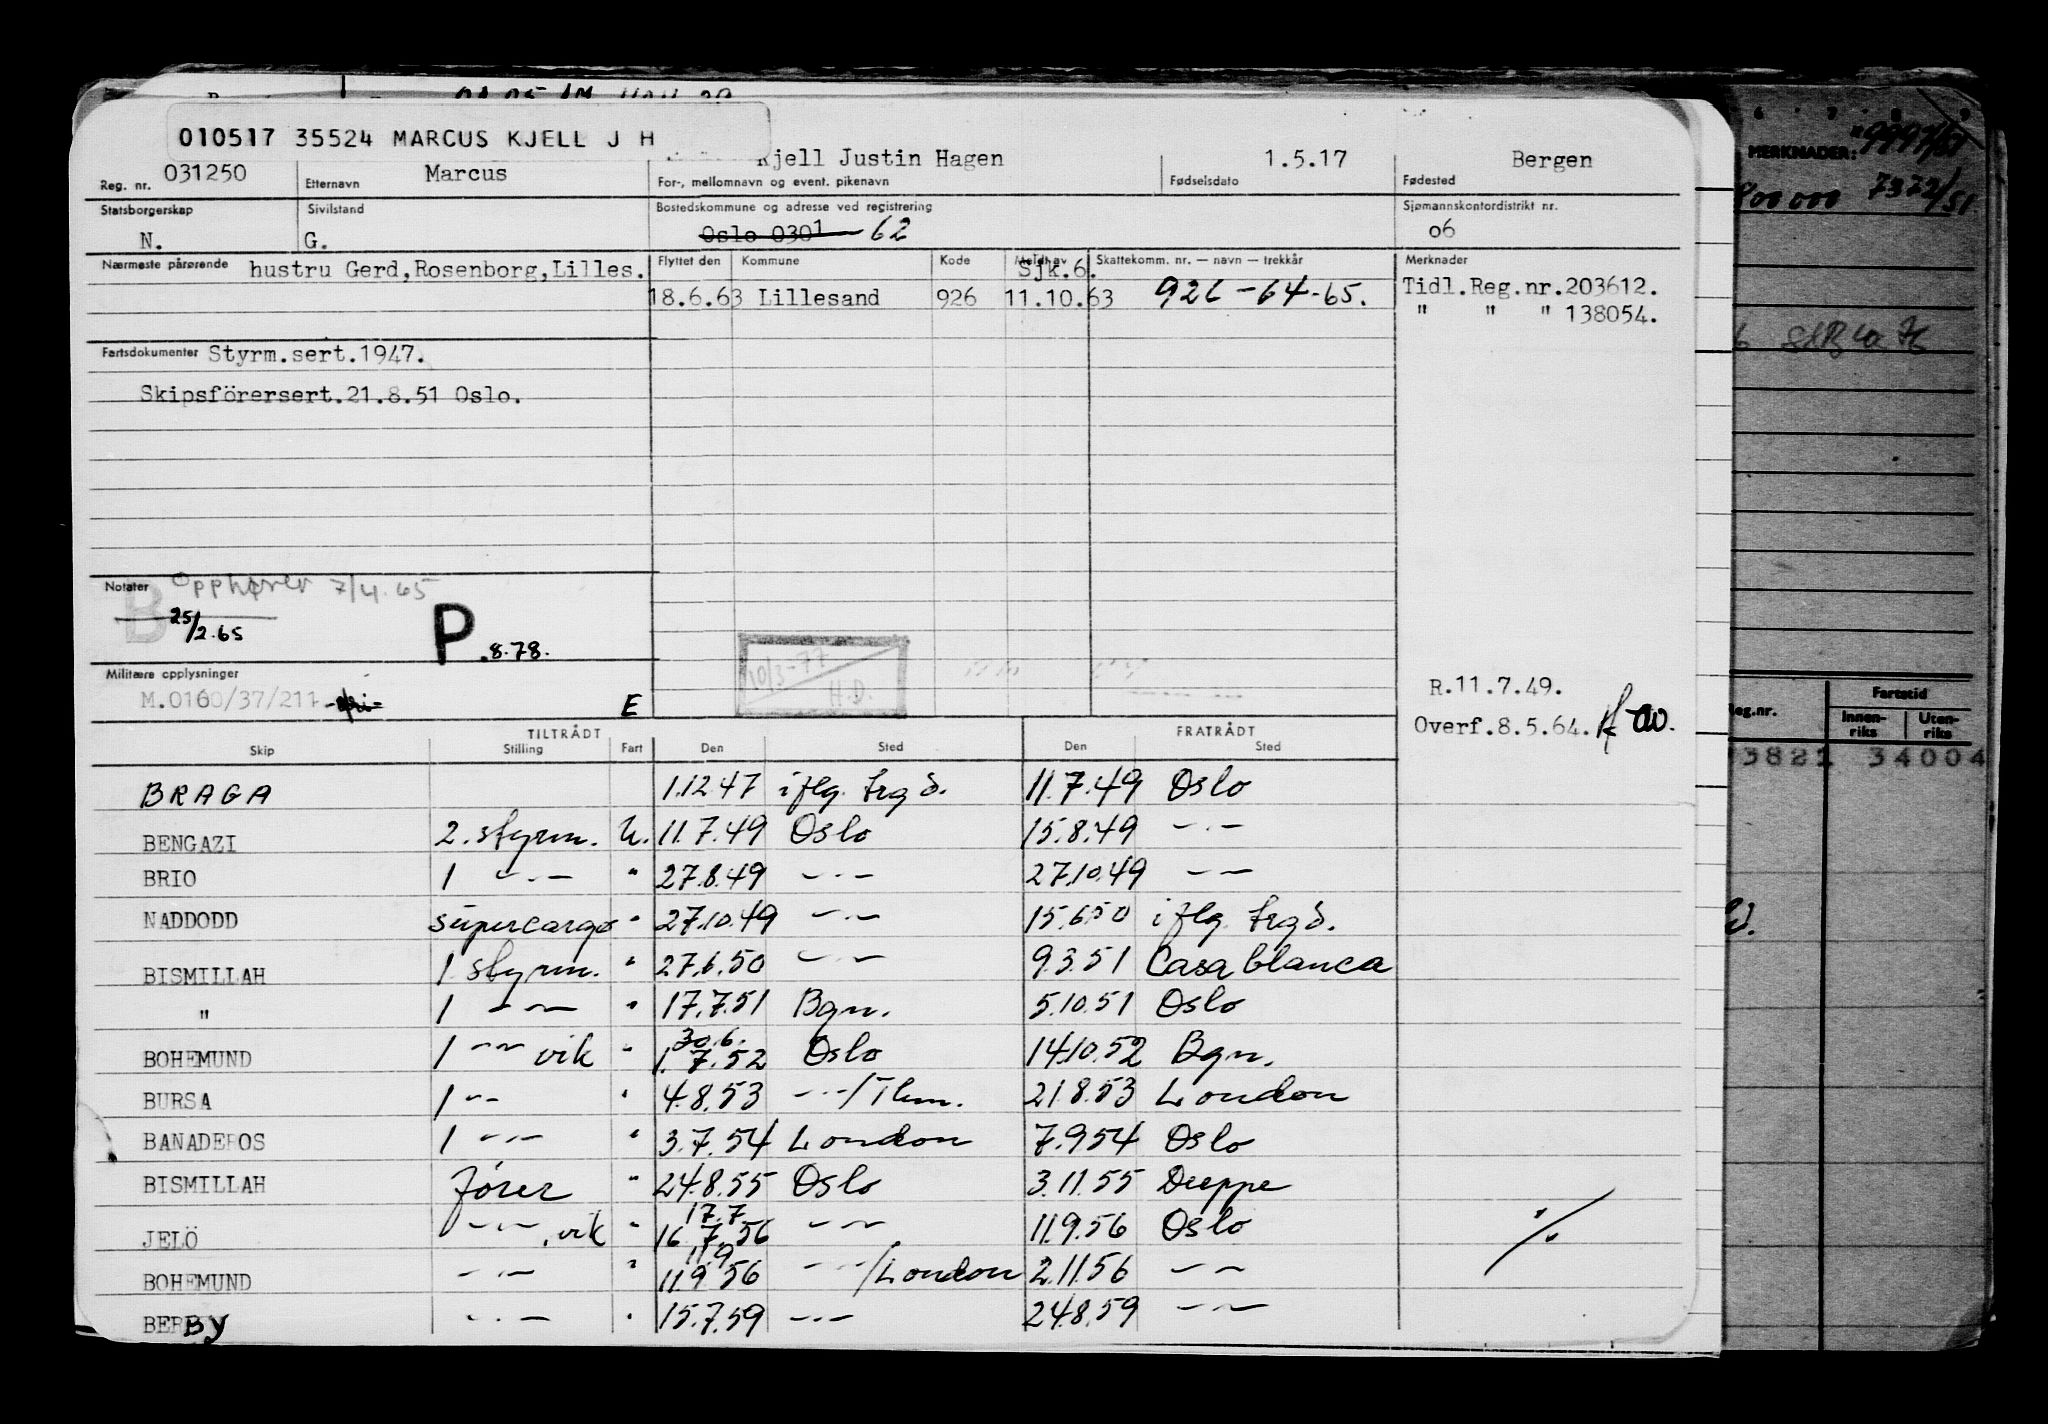 010517 35524 MARCUS KJELL J H
Reg. nr. 031250 Etternavn Marcus Kjell Justin Hagen For-, mellomnavn og event. pikenavn Fødselsdato 1.5.17 Fødested Bergen
Statsborgerskap N. Sivilstand G. Bostedskommune og adresse ved registrering Oslo 0301 62 Sjømannskontordistrikt nr. 06
Nærmeste pårørende hustru Gerd,Rosenborg,Lilles. Flyttet den Kommune Kode Meldt av Sjk.6. Skattekomm. nr. — navn — trekkår Merknader
18.6.63 Lillesand 926 11.10.63 926-64-65. Tidl.Reg.nr.203612.
" " " 138054.
Fartsdokumenter Styrm.sert.1947.
Skipsförersert.21.8.51 Oslo.
Notater B Opphører 7/4.65
25/2.65
P .8.78.
10/3-77
H.D.
Militære opplysninger
M.0160/37/211 E
R.11.7.49.
Overf.8.5.64.
TILTRÅDT FRATRÅDT
Skip Stilling Fart Den Sted Den Sted
BRAGA 1.12.47 iflg. frg.d. 11.7.49 Oslo
BENGAZI 2. styrm. U. 11.7.49 Oslo 15.8.49 —"—
BRIO 1 —"— " 27.8.49 —"— 27.10.49 —"—
NADDODD supercargo " 27.10.49 —"— 15.6.50 iflg. frg.d.
BISMILLAH 1. styrm. " 27.6.50 —"— 9.3.51 Casablanca
" 1 —"— " 17.7.51 Bgn. 5.10.51 Oslo
BOHEMUND 1 —"— vik " 30.6. 1.7.52 Oslo 14.10.52 Bgn.
BURSA 1 —"— " 4.8.53 —"—/Thm. 21.8.53 London
BANADEROS 1 —"— " 3.7.54 London 7.9.54 Oslo
BISMILLAH fører " 24.8.55 Oslo 3.11.55 Dieppe
JELÖ —"— . vik " 17.7 16.7.56 —"— 11.9.56 Oslo
BOHEMUND —"— " 11.9 11.9.56 —"—/London 2.11.56 —"—
BERBY —"— " 15.7.59 —"— 24.8.59 —"—
./.
MERKNADER: 9997/51
800 000 7372/51
Reg.nr. Fartstid
Innen-riks Uten-riks
3821 34004